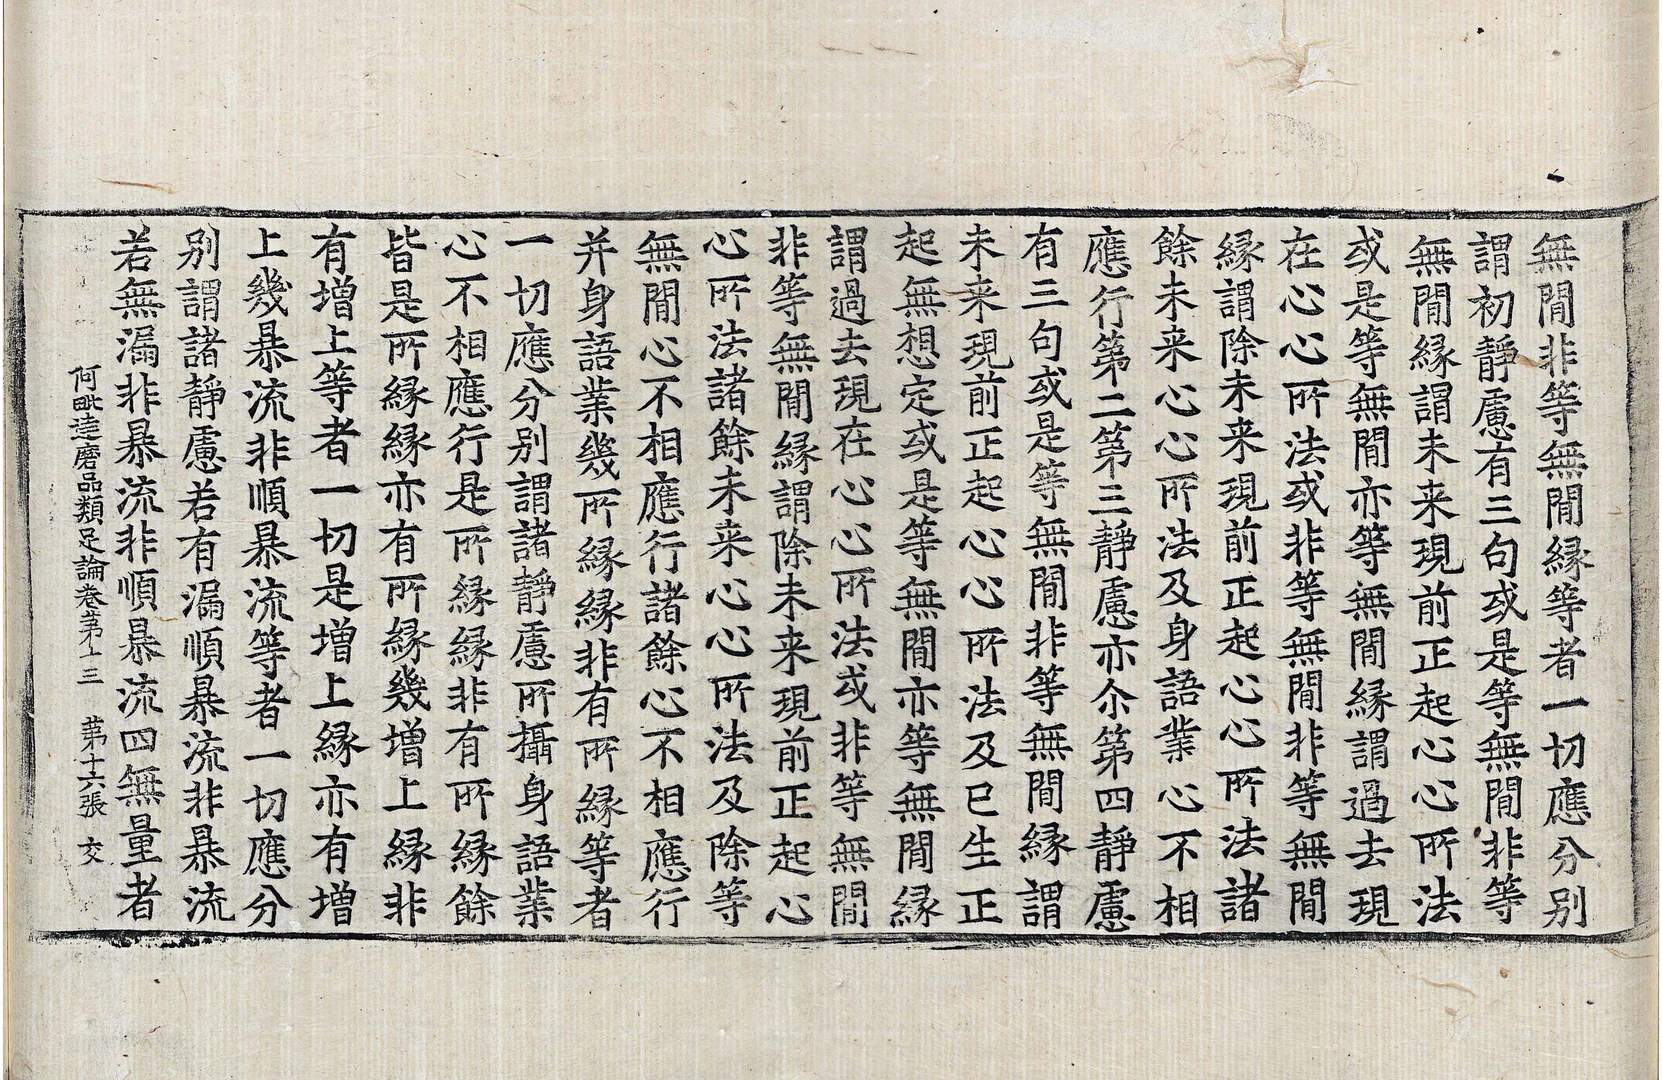 無閒非等無閒縁等者一切應分別
謂初靜慮有三句或是等無閒非等
無閒縁謂未来現前正起心心所法
或是等無閒亦等無閒縁謂過去現
在心心所法或非等無閒非等無閒
縁謂除未来現前正起心心所法諸
餘未来心心所法及身語業心不相
應行第二第三靜慮亦尒第四靜慮
有三句或是等無閒非等無閒縁謂
未来現前正起心心所法及已生正
起無想定或是等無閒亦等無閒縁
謂過去現在心心所法或非等無閒
非等無閒縁謂除未来現前正起心
心所法諸餘未来心心所法及除等
無閒心不相應行諸餘心不相應行
并身語業幾所縁縁非有所縁等者
一切應分別謂諸靜慮所攝身語業
心不相應行是所縁縁非有所縁餘
皆是所縁縁亦有所縁幾增上縁非
有增上等者一切是增上縁亦有增
上幾暴流非順暴流等者一切應分
別謂諸靜慮若有漏順暴流非暴流
若無漏非暴流非順暴流四無量者
阿毗達磨品類足論卷第十三 第十六張 交